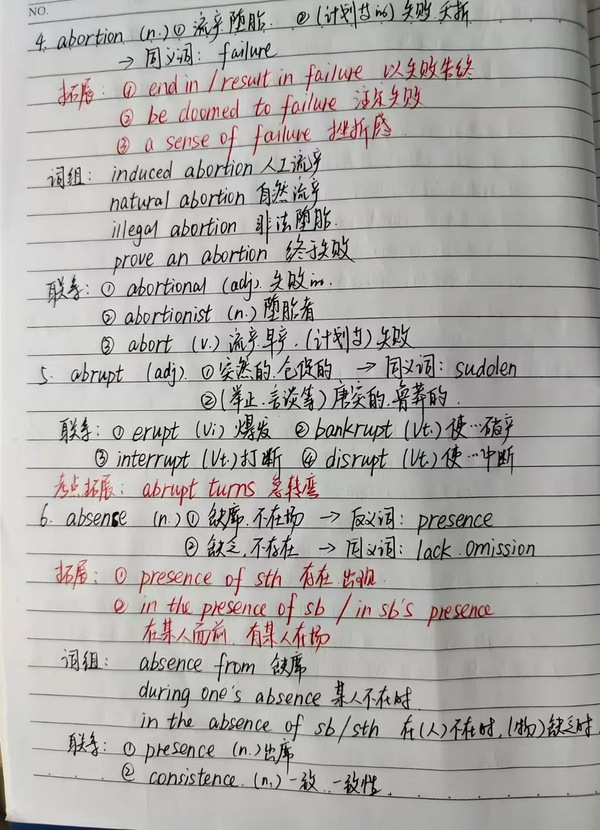 NO.
4. abortion (n.) ① 流产 堕胎. ② (计划等的) 失败 夭折
→ 同义词: failure
拓展: ① end in / result in failure 以失败告终
② be doomed to failure 注定失败
③ a sense of failure 挫折感
词组: induced abortion 人工流产
natural abortion 自然流产
illegal abortion 非法堕胎.
prove an abortion 终于失败
联系: ① abortional (adj). 失败的.
② abortionist (n.) 堕胎者
③ abort (v.) 流产.早产.(计划等)失败
5. abrupt (adj). ①突然的.仓促的 → 同义词: sudden
②(举止.言谈等)唐突的.鲁莽的.
联系: ① erupt (vi) 爆发 ② bankrupt (vt.) 使…破产
③ interrupt (vt.) 打断 ④ disrupt (vt.) 使…中断
考点拓展: abrupt turns 急转弯
6. absense (n.) ① 缺席.不在场 → 反义词: presence
② 缺乏.不存在 → 同义词: lack.omission
拓展: ① presence of sth 存在 出现.
② in the presence of sb / in sb's presence
在某人面前 有某人在场
词组: absence from 缺席
during one's absence 某人不在时.
in the absence of sb/sth 在(人)不在时,(物)缺乏时
联系: ① presence (n.) 出席
② consistence.(n.) 一致 一致性.